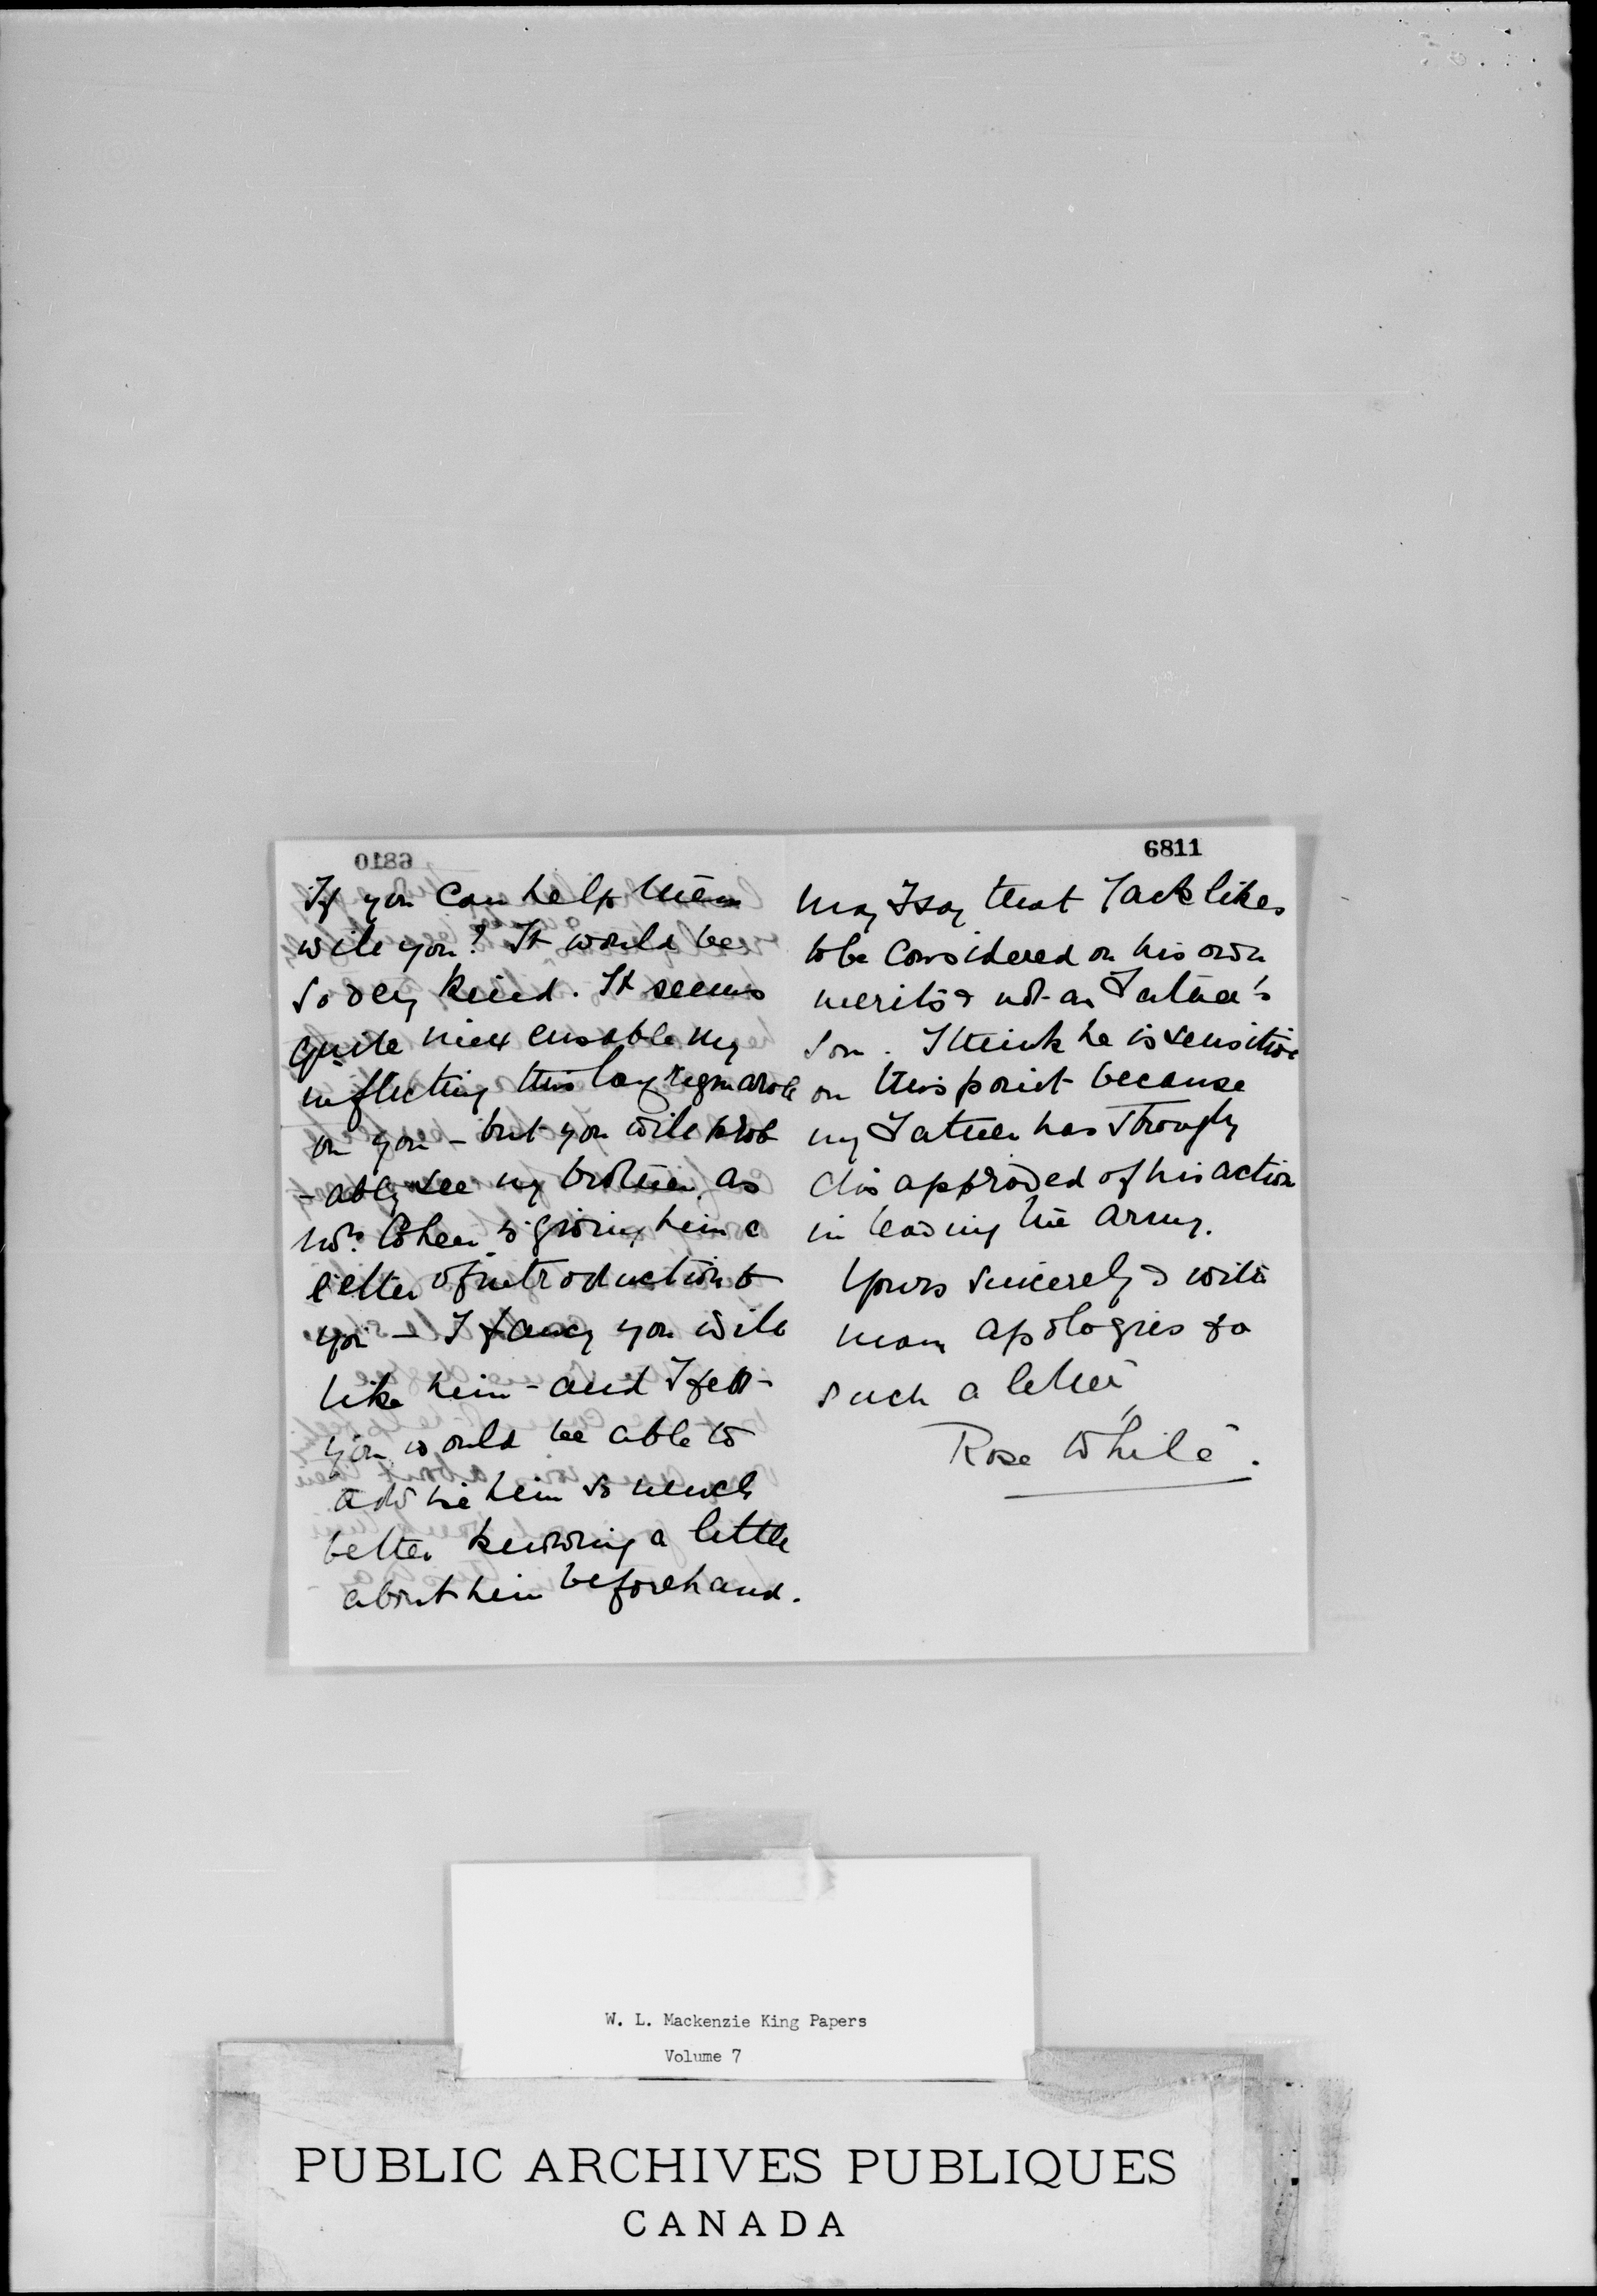 6811
If you can help them
will you? It would be
so very kind. It seems
quite inexcusable my
inflicting this long rigmarole
on you – but you will prob
-ably see my brother, as
Mrs. Cohen is giving him a
letter of introduction to
you – I fancy you will
like him – and I felt
you would be able to
advise him so much
better knowing a little
about him beforehand.
May I say that Jack likes
to be considered on his own
merits & not as Father's
son. I think he is sensitive
on this point because
my Father has strongly
disapproved of his action
in leaving the army.
Yours sincerely & with
many apologies for
such a letter
Rose White.
W. L. Mackenzie King Papers
Volume 7
PUBLIC ARCHIVES PUBLIQUES
CANADA